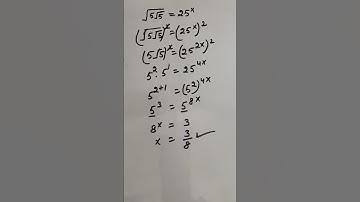 √5√5 = 25ˣ
(√5√5)ˣ = (25ˣ)²
(5√5)ˣ = (25²ˣ)²
5² · 5¹ = 25⁴ˣ
5²⁺¹ = (5²)⁴ˣ
5³ = 5⁸ˣ
8ˣ = 3
x = 3/8 ✓